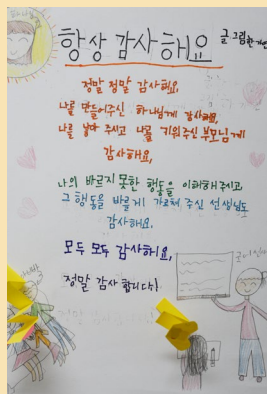 하나님
항상 감사해요
정말 정말 감사해요,
나를 만들어주신 하나님께 감사해요,
나를 낳아 주시고 나를 키워주신 부모님께
감사해요,
나의 바르지 못한 행동을 이해해주시고
그 행동을 바르게 가르쳐 주신 선생님도
감사해요.
모두 모두 감사해요,
정말 감사합니다!